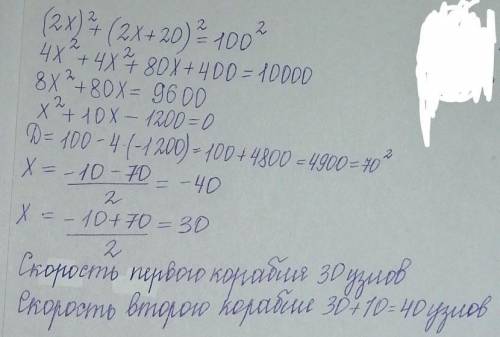 (2x)² + (2x+20)² = 100²
4x² + 4x² + 80x + 400 = 10000
8x² + 80x = 9600
x² + 10x - 1200 = 0
D = 100 - 4·(-1200) = 100 + 4800 = 4900 = 70²
x = (-10 - 70)/2 = -40
x = (-10 + 70)/2 = 30
Скорость первого корабля 30 узлов
Скорость второго корабле 30+10=40 узлов